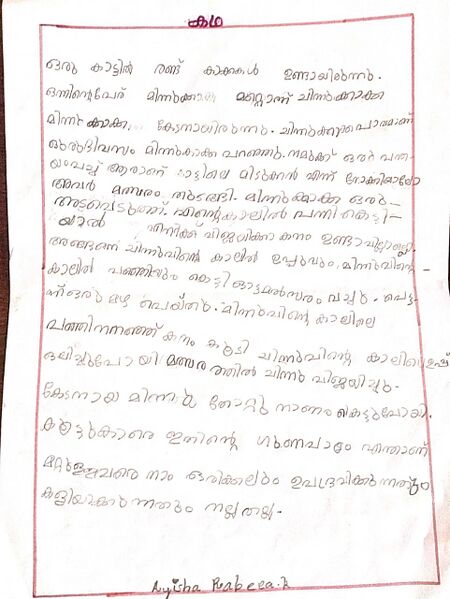 കഥ
ഒരു കാട്ടിൽ രണ്ട് കാക്കകൾ ഉണ്ടായിരുന്നു.
ഒന്നിന്റെപേര് മിന്നുകാക്ക മറ്റൊന്ന് ചിന്നുകാക്ക
മിന്നുകാക്ക കേടനായിരുന്നു. ചിന്നുകാക്ക പാവമാണ്
ഒരുദിവസം മിന്നുകാക്ക പറഞ്ഞു. നമുക്ക് ഒരു പന്ത
യംവച്ച് ആരാണ് കാട്ടിലെ മിടുക്കൻ എന്ന് നോക്കിയാലോ
അവർ മത്സരം തുടങ്ങി. മിന്നുകാക്ക ഒരു-
അടവെടുത്തു. എന്റെകാലിൽ പഞ്ഞി കെട്ടി-
യാൽ എനിക്ക് വിജയിക്കാ കനം ഉണ്ടാവില്ലല്ലോ.
അങ്ങനെ ചിന്നുവിന്റെ കാലിൽ ഉപ്പുവും, മിന്നുവിന്റെ-
കാലിൽ പഞ്ഞിയും കെട്ടി ഓട്ടമൽസരം വച്ചു. പെട്ട-
ന്ന് ഒരു മഴ പെയ്തു. മിന്നുവിന്റെ കാലിലെ
പഞ്ഞിനനഞ്ഞ് കനം കൂട്ടി ചിന്നുവിന്റെ കാലിലെഉപ്പ്
ഒലിച്ചുപോയി മത്സരത്തിൽ ചിന്നു വിജയിച്ചു.
കേടനായ മിന്നു തോറ്റു നാണം കെട്ടുപോയി.
കൂട്ടുകാരെ ഇതിന്റെ ഗുണപാഠം എന്താണ്
മറ്റുള്ളവരെ നാം ഒരിക്കലും ഉപദ്രവിക്കുന്നതും
കളിയാക്കുന്നതും നല്ലതല്ല.
Ayisha Rabeea.k